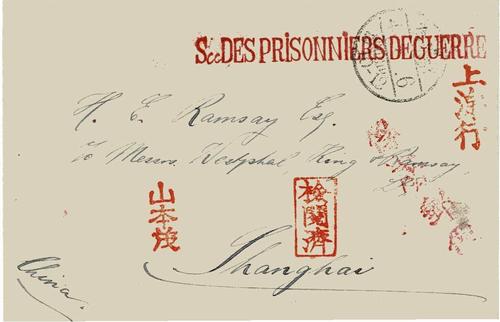 Scc DES PRISONNIERS DE GUERRE
上海行
H. E. Ramsay Esq.
c/o Messrs. Westphal, King & Ramsay,
Ld.
山本茂
検閲濟
Shanghai
China.